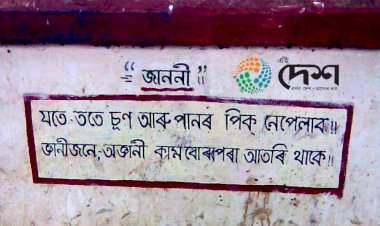 “ জাননী ”
এই
দেশ
যতে ততে চুণ আৰু পানৰ পিক নেপেলাব॥
জ্ঞানীজনে, অজ্ঞানী কামবোৰৰপৰা আতৰি থাকে॥